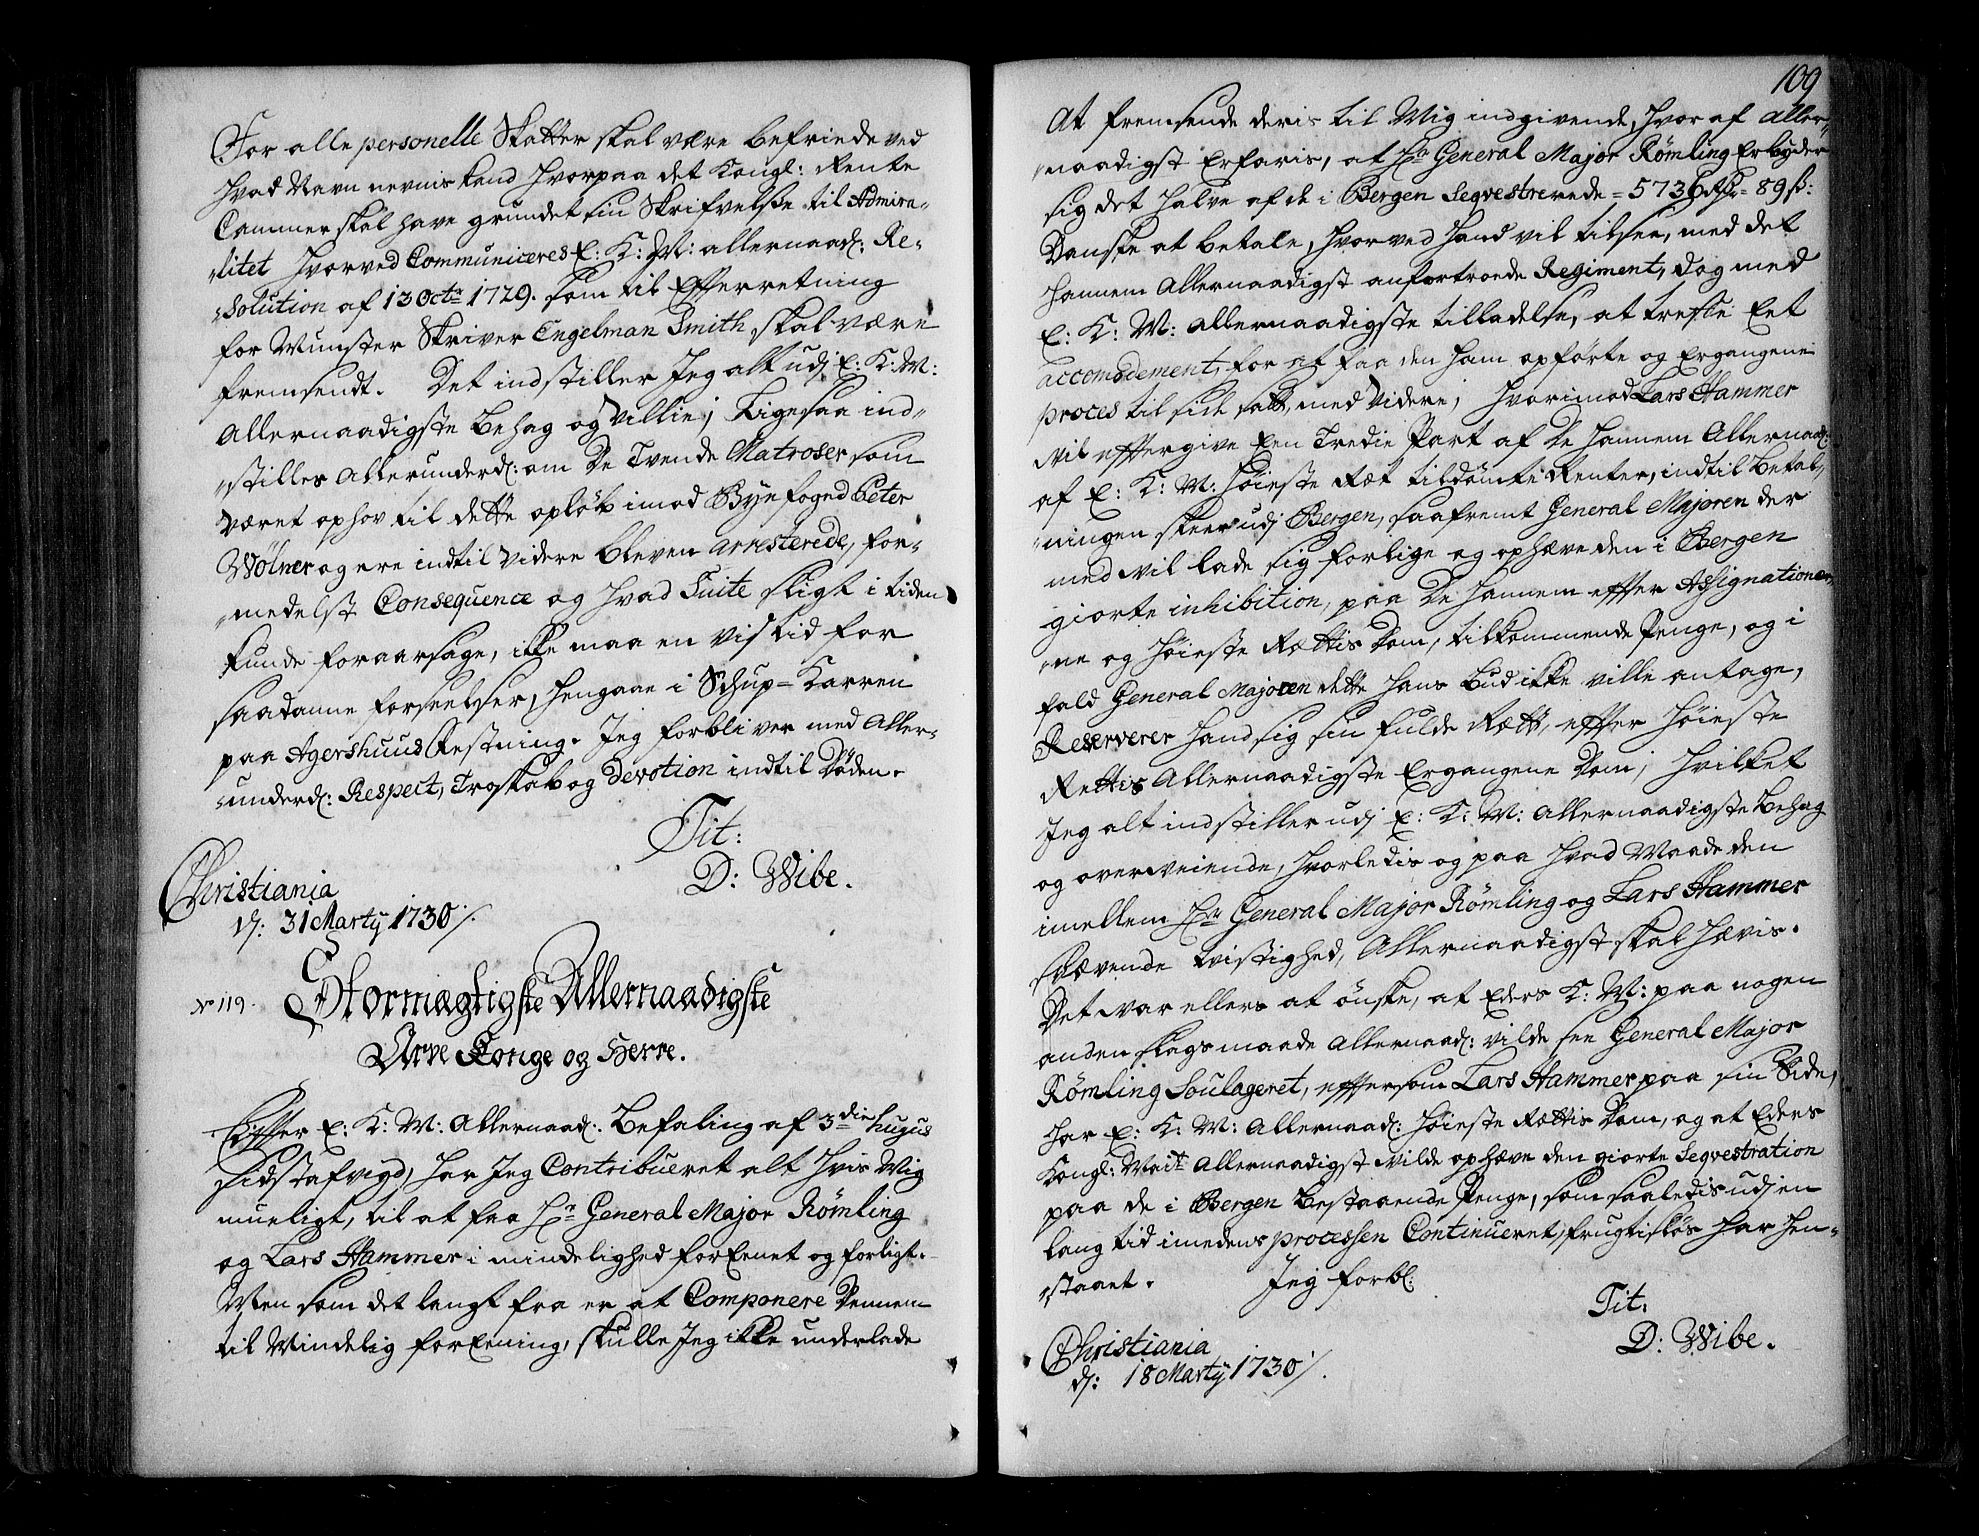 For alle personelle Skatter skal være befriede ved
hvad Navn nevnis kand hvorpaa det Kongl: Rente
Cammer skal have grundet sin Skrifvelse til Admira-
litet hvorved Communiceres E: K: M: allernaad: Re-
solution af 13 Octr 1729. som til Efferretning
for Munster Skriver Engelman Smith, skal være
fremsendt. Det indstiller Jeg alt udj E: K: M:
Allernaadigste behag og Villie; Ligesaa ind-
stilles Allerunderd: om De Tvende Matroser som
været ophov til dette opløb imod Byefogned Peter
Wølner og ere indtil videre bleven arresterede, for-
medelst Consequence og hvad Suite sligt i tiden
kunde foraarsage, ikke maa en vis tid for
saadanne forseelser, hengaae i Schup-Karren
paa Agershuus Festning. Jeg forbliver med Aller-
underd: Respect, Troskab og Devotion indtil Døden.
Tit:
D: Wibe.
Christiania
d: 31 Marty 1730 ./.
No 119.
Stormægtigste Allernaadigste
Arve Konge og Herre.
Effter E: K: M: Allernaad: Befaling af 3die hugus
sidst afvigd, har Jeg Contribueret alt hvis Mig
mueligt, til at faa Hr General Major Rømling
og Lars Hammer i mindelighed foreenet og forligt.
Men som det langt fra er at Componere Dennem
til Mindelig foreening, skulle Jeg ikke underlade
109
At fremsende deris til Mig indgivende, hvor af aller-
naadigst Erfaris, at Hr General Major Rømling Erbyder
sig det halve af de i Bergen Seqvestrerede = 5736 Rdr = 89 ß:
Danske at betale, hvorved hand vil tilsee, med det
hannem Allernaadigst anfortroede Regiment, dog med
E: K: M: Allernaadigste tilladelse, at treffe Eet
accomodement, for at faa den ham opførte og Ergangene
proces til side satt, med videre; hvorimod Lars Hammer
vil eftergive Een Tredie Part af De hannem Allernaad:
af E: K: M: Høieste Ræt tildømte Renter, indtil betal-
ningen skeer udj Bergen, saafremt General Majoren der
med vil lade sig forlige og ophæve den i Bergen
giorte inhibition, paa De hannem effter Assignationer-
ne og Høieste Rettis Dom, tilkommende Penge, og i
fald General Majoren dette hans bud ikke ville antage,
Reserverer hand sig sin fulde Rætt, effter Høieste
Rettis Allernaadigste Ergangene Dom; hvilket
Jeg alt indstiller udj E: K: M: Allernaadigste behag
og overveiende, hvorledis og paa hvad Maade den
imellem Hr General Major Rømling og Lars Hammer
svævende tvistighed, Allernaadigst skal hævis.
Det var ellers at ønske, at Eders K: M: paa nogen
anden slags maade Allernaad: vilde see General Major
Rømling Soulageret, effter som Lars Hammer paa sin Side,
har E: K: M: Allernaad: Høieste Rættis Dom, og at Eders
Kongl: Mait Allernaadigst vilde ophæve den giorte Seqvestration
paa de i Bergen bestaaende Penge, som saaledis udj en
lang tid imedens processen Continueret, frugtisløs har hen-
staaet. Jeg forbl:
Tit:
D: Wibe.
Christiania
d: 18 Marty 1730 ./.